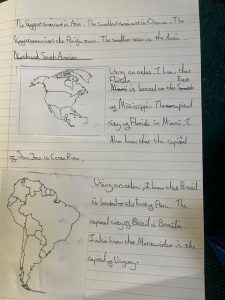 The biggest continent is Asia. The smallest continent is Oceania. The
largest ocean is the Pacific ocean. The smallest ocean is the Arctic.
North and South America
Using an atlas, I know that
Florida East
is located in the South
of Mississippi. The capital
city of Florida is Miami. I
Also know that the capital
of San Jose is Costa Rica.
Using an atlas, I know that Brazil
is located to the East of Peru. The
capital city of Brazil is Brasilia.
I also know that Montevideo is the
capital of Uruguay.